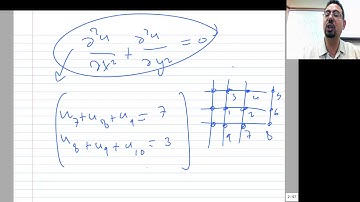 ∂²u/∂x² + ∂²u/∂y² = 0
u₇ + u₈ + u₉ = 7
u₈ + u₉ + u₁₀ = 3
3 4 5
1 2 6
9 7 8